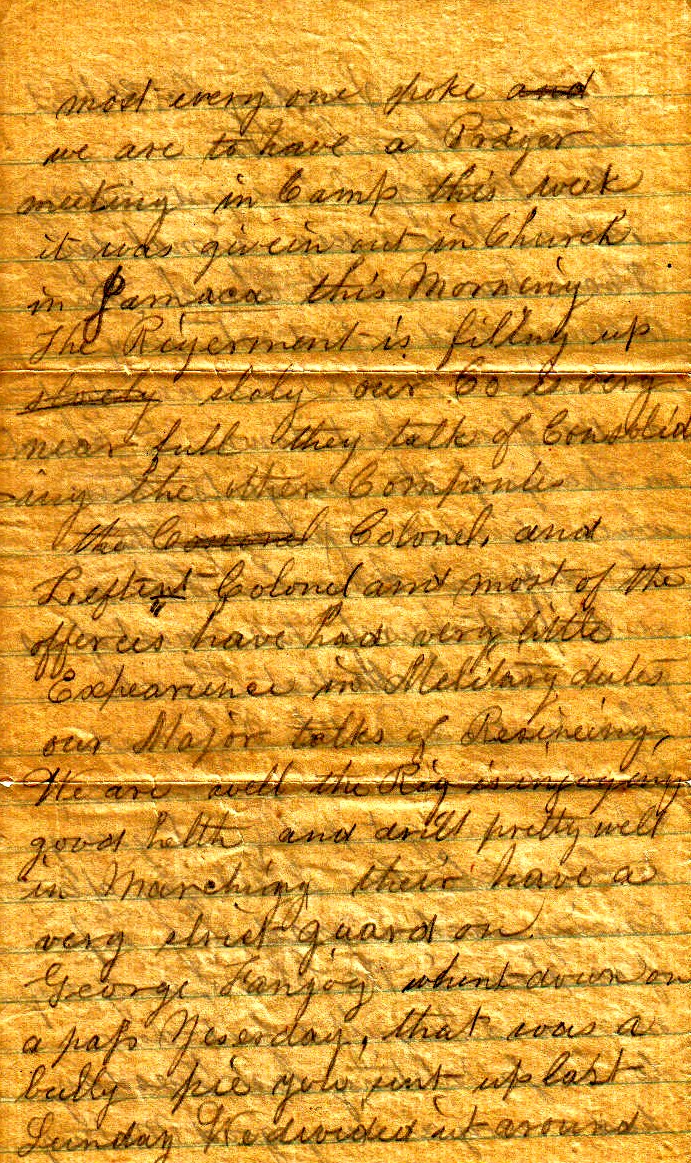 most every one spoke and
we are to have a Prayer
meeting in Camp this week
it was givein out in Church
in Jamaca this Morning
The Rigerment is filling up
slowly sloly our Co is very
near full they talk of Consolid
-ing the other Companies
the Colonel, and
Leftint Colonel and most of the
offerces have had very little
Expearience in Melitary dutes
our Major talks of Resineing,
We are well the Rig is injoying
good helth and drill pretty well
in Marching their have a
very strict guard on
George Fanjoy whent down on
a pass Yeserday, that was a
bully pie you sent up last
Sunday We divided it around